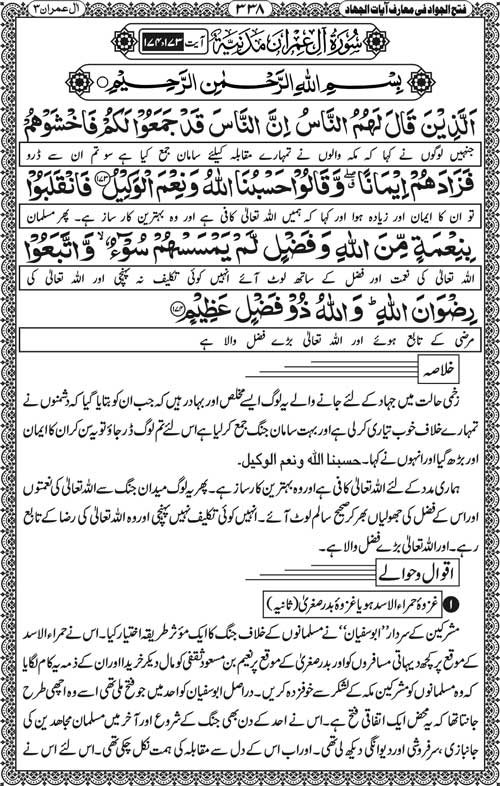 آل عمران ۳
۳۳۸
فتح الجواد فی معارف آیات الجهاد
سُورَةُ آلِ عِمْرَانَ مَدَنِيَّةٌ آیت ۱۷۳، ۱۷۴
بِسْمِ اللهِ الرَّحْمٰنِ الرَّحِيْمِ
اَلَّذِيْنَ قَالَ لَهُمُ النَّاسُ اِنَّ النَّاسَ قَدْ جَمَعُوْا لَكُمْ فَاخْشَوْهُمْ
جنہیں لوگوں نے کہا کہ مکہ والوں نے تمہارے مقابلہ کیلئے سامان جمع کیا ہے سو تم ان سے ڈرو
فَزَادَهُمْ اِيْمَانًا ۖ وَّقَالُوْا حَسْبُنَا اللهُ وَنِعْمَ الْوَكِيْلُ ﴿۱۷۳﴾ فَانْقَلَبُوْا
تو ان کا ایمان اور زیادہ ہوا اور کہا کہ ہمیں اللہ تعالیٰ کافی ہے اور وہ بہترین کار ساز ہے۔ پھر مسلمان
بِنِعْمَةٍ مِّنَ اللهِ وَفَضْلٍ لَّمْ يَمْسَسْهُمْ سُوْٓءٌ ۙ وَّاتَّبَعُوْا
اللہ تعالیٰ کی نعمت اور فضل کے ساتھ لوٹ آئے انہیں کوئی تکلیف نہ پہنچی اور اللہ تعالیٰ کی
رِضْوَانَ اللهِ ؕ وَاللهُ ذُوْ فَضْلٍ عَظِيْمٍ ﴿۱۷۴﴾
مرضی کے تابع ہوئے اور اللہ تعالیٰ بڑے فضل والا ہے
خلاصہ
زخمی حالت میں جہاد کے لئے جانے والے یہ لوگ ایسے مخلص اور بہادر ہیں کہ جب ان کو بتایا گیا کہ دشمنوں نے
تمہارے خلاف خوب تیاری کرلی ہے اور بہت سامان جنگ جمع کرلیا ہے اس لئے تم لوگ ڈر جاؤ تو یہ سن کر ان کا ایمان
اور بڑھ گیا اور انہوں نے کہا۔ حسبنا الله ونعم الوكيل.
ہماری مدد کے لئے اللہ تعالیٰ کافی ہے اور وہ بہترین کارساز ہے۔ پھر یہ لوگ میدان جنگ سے اللہ تعالیٰ کی نعمتوں
اور اس کے فضل کی جھولیاں بھر کر صحیح سالم لوٹ آئے۔ انہیں کوئی تکلیف نہیں پہنچی اور وہ اللہ تعالیٰ کی رضا کے تابع
رہے۔ اور اللہ تعالیٰ بڑے فضل والا ہے۔
اقوال وحوالے
۱ غزوۂ حمراء الاسد ہو یا غزوۂ بدر صغریٰ (ثانیہ)
مشرکین کے سردار ”ابوسفیان“ نے مسلمانوں کے خلاف جنگ کا ایک مؤثر طریقہ اختیار کیا۔ اس نے حمراء الاسد
کے موقع پر کچھ دیہاتی مسافروں کو اور بدر صغریٰ کے موقع پر نعیم بن مسعود ثقفی کو مال دیکر خریدا اور ان کے ذمہ یہ کام لگایا
کہ وہ مسلمانوں کو مشرکین مکہ کے لشکر سے خوفزدہ کریں۔ در اصل ابوسفیان کو احد میں جو فتح ملی تھی اسے وہ اچھی طرح
جانتا تھا کہ یہ محض ایک اتفاقی فتح ہے۔ اس نے احد کے دن بھی جنگ کے شروع اور آخر میں مسلمان مجاہدین کی
جانبازی، سرفروشی اور دیوانگی دیکھ لی تھی۔ اور اب اس کے دل سے مقابلہ کی ہمت نکل چکی تھی۔ اس لئے اس نے